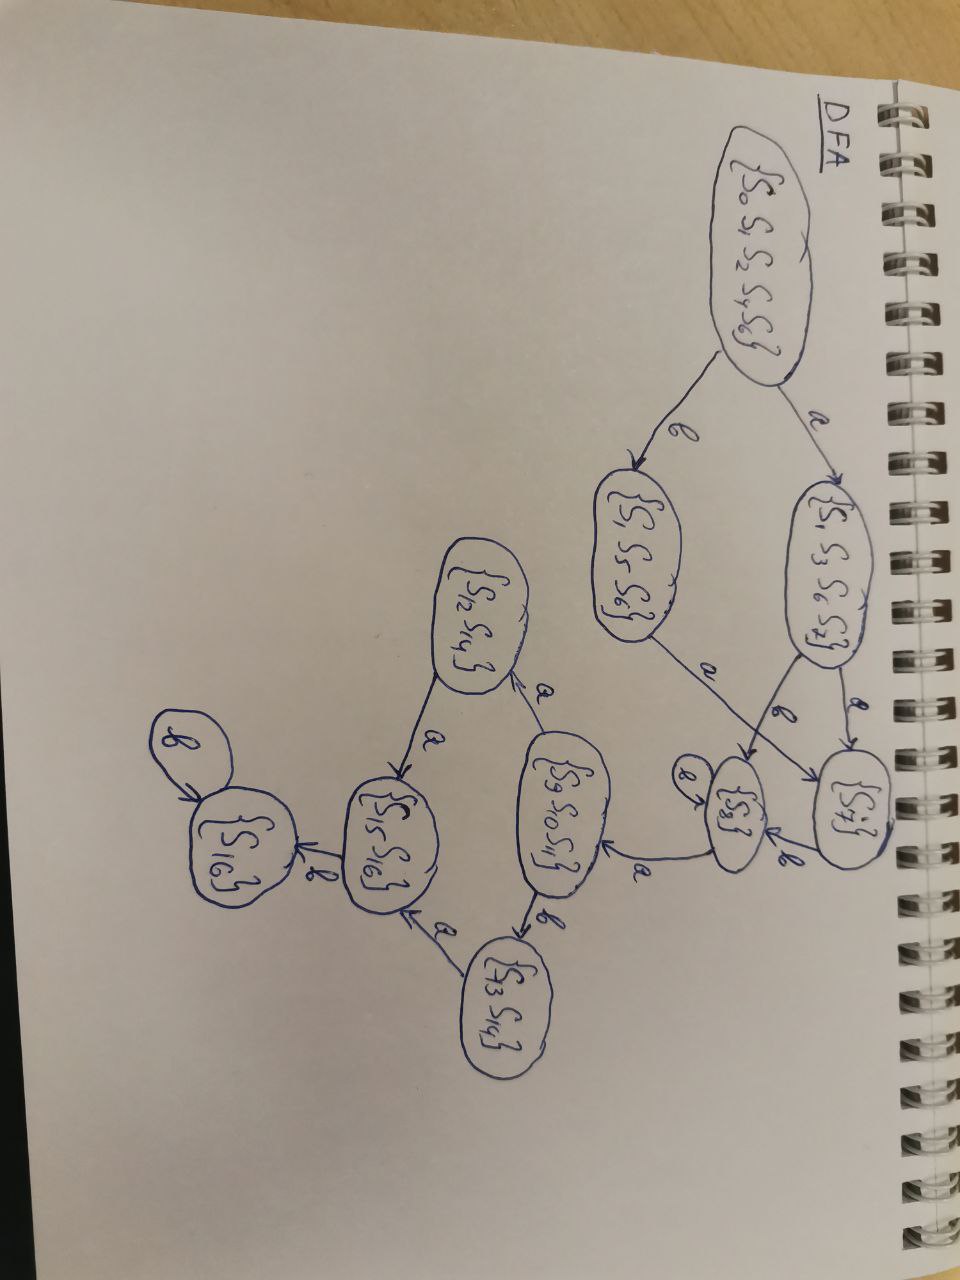 DFA
{S0 S1 S2 S4 S6}
a
b
{S1 S3 S6 S7}
{S1 S5 S6}
a
b
a
{S7}
{S8}
b
b
a
{S9 S10 S11}
a
b
{S12 S14}
{S13 S14}
a
a
{S15 S16}
b
{S16}
b